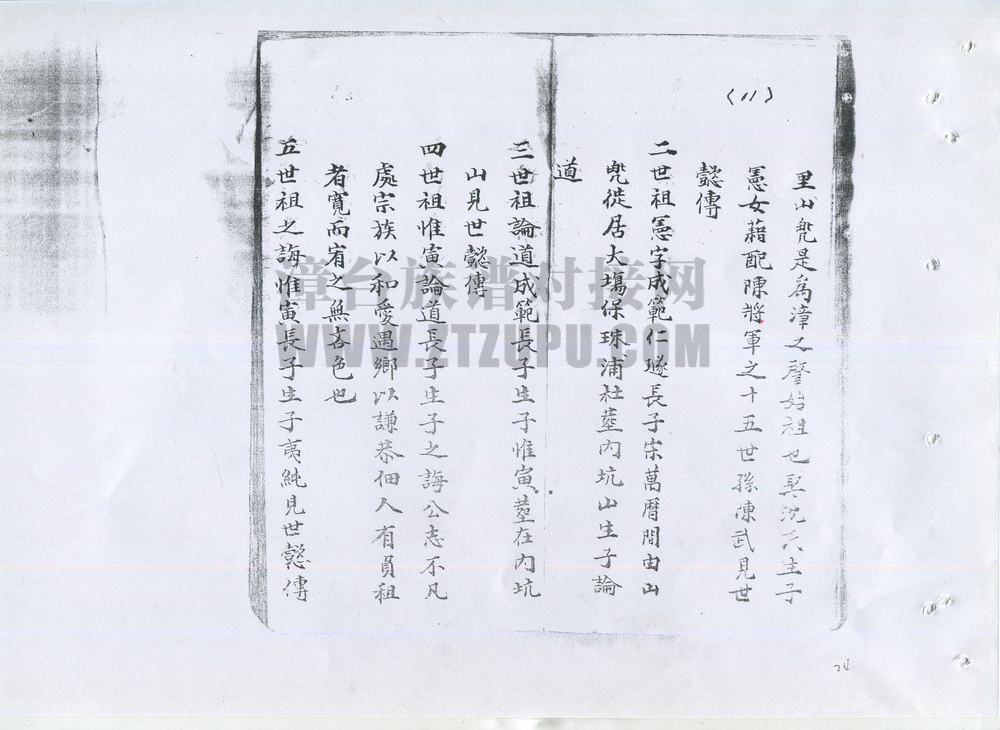 (11)
里山兠是為漳之肇始祖也娶沈氏生子
憲女藉配陳將軍之十五世孫陳武見世
懿傳
二世祖憲字成範仁璲長子宋萬曆間由山
兠徙居大塲保珠浦社塟内坑山生子論
道
三世祖論道成範長子生子惟寅塟在内坑
山見世懿傳
四世祖惟寅論道長子生子之誨公志不凡
處宗族以和愛遇鄉以謙恭佃人有員租
者寬而宥之無吝色也
五世祖之誨惟寅長子生子夷純見世懿傳
漳台族谱对接网
WWW.ZTZUPU.COM
24